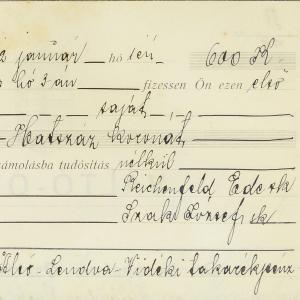 2 január hó 1én 600 K
hó 3 án fizessen Ön ezen első
saját
Hatszáz koronát
zámolásba tudósítás nélkül
Reichenfeld Ede sk
Szaki József sk
Alsó-Lendva-Vidéki takarékpénz